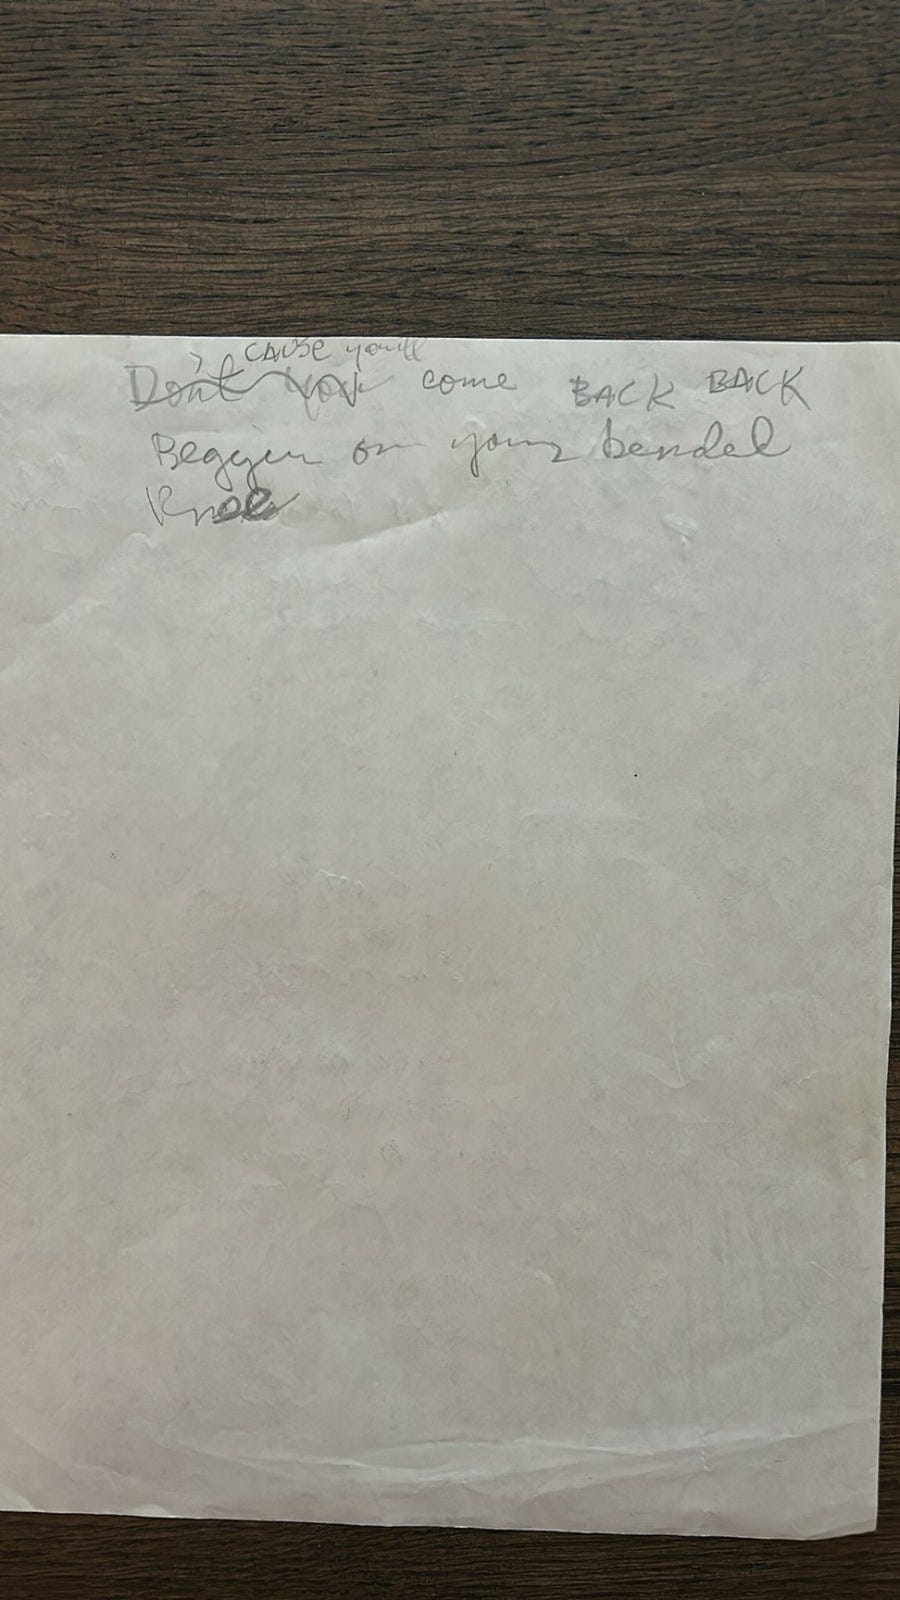 'CAUSE you'll
Don't You come BACK BACK
Beggin on your bended
Knee